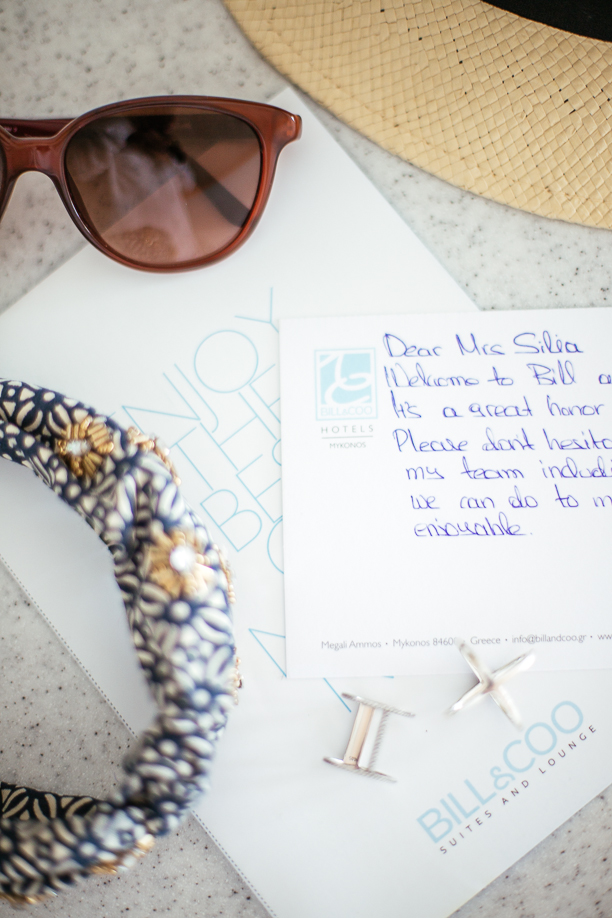 ENJOY
THE
BES
BILL&COO
HOTELS
MYKONOS
Dear Mrs Silia
Welcome to Bill a
It's a great honor
Please dont hesita
my team includi
we can do to m
enjoyable.
Megali Ammos • Mykonos 8460 Greece • info@billandcoo.gr • ww
BILL&COO
SUITES AND LOUNGE